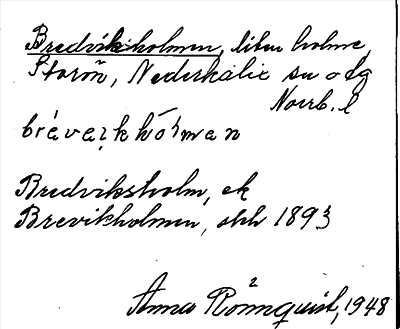 Bredviksholmen, liten holme,
Storön, Nederkalix sn o tg
Norrb. l
bréve̩rkhól̄man
Bredviksholm, ek
Brevikholmen, shh 1893
Anna Rönnquist, 1948